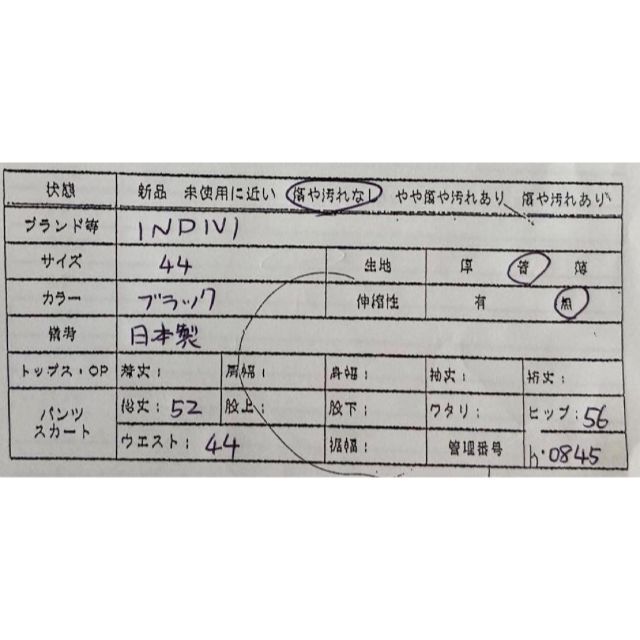 状態 新品 未使用に近い 傷や汚れなし やや傷や汚れあり 傷や汚れあり
ブランド等 INDIVI
サイズ 44 生地 厚 普 薄
カラー ブラック 伸縮性 有 無
備考 日本製
トップス・OP 着丈: 肩幅: 身幅: 袖丈: 裄丈:
パンツ スカート 総丈:52 股上: 股下: ワタリ: ヒップ:56
ウエスト:44 裾幅: 管理番号 h・0845